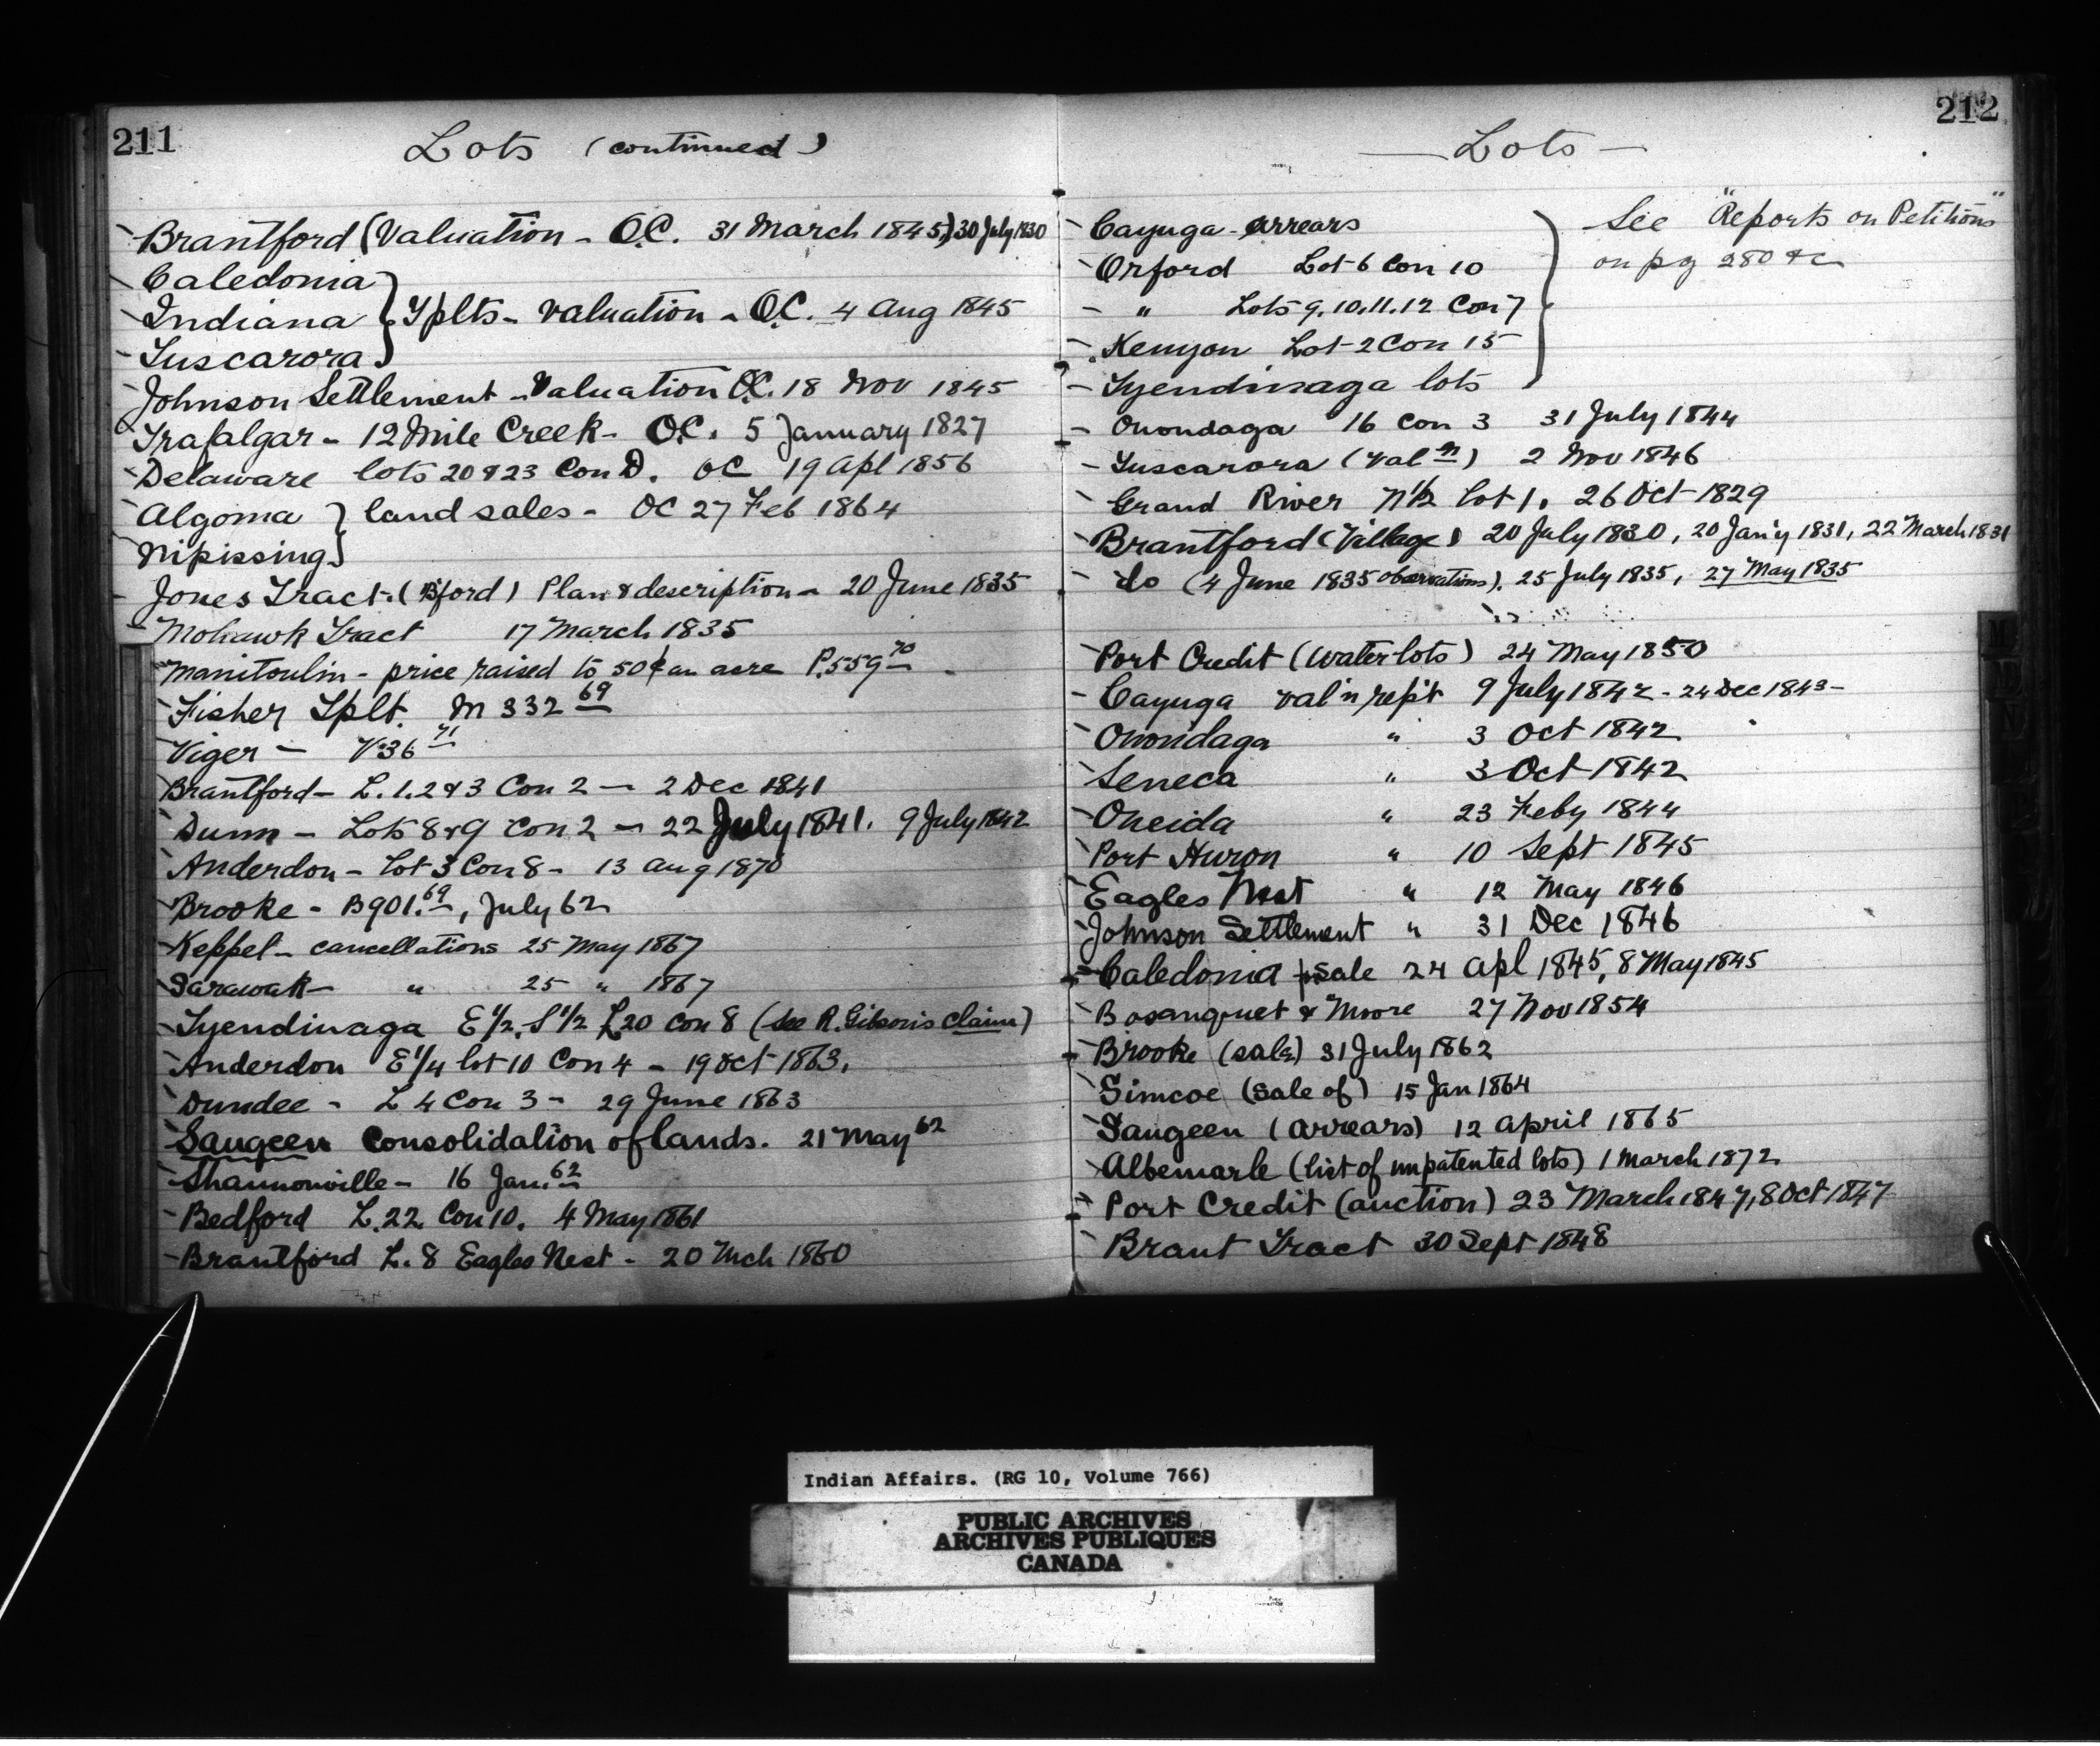 211
Lots (continued)
Brantford (Valuation - O.C. 31 March 1845,) 30 July 1830
Caledonia
Indiana } Tplts - valuation - O.C. 4 Aug 1845
Tuscarora
Johnson Settlement - Valuation O.C. 18 Nov 1845
Trafalgar - 12 Mile Creek - O.C. 5 January 1827
Delaware lots 20 & 23 Con D. OC 19 Apl 1856
Algoma } land sales - OC 27 Feb 1864
Nipissing
Jones Tract - (B'ford) Plan & description - 20 June 1835
Mohawk Tract 17 March 1835
Manitoulin - price raised to 50¢ an acre P.559 70
Fisher Tplt. M 332 69
Viger - V36 71
Brantford - L. 1. 2 & 3 Con 2 - 2 Dec 1841
Dunn - Lots 8 & 9 Con 2 - 22 July 1841. 9 July 1842
Anderdon - Lot 3 Con 8 - 13 Aug 1870
Brooke - B901. 69, July 62
Keppel - cancellations 25 May 1867
Sarawak - " 25 " 1867
Tyendinaga E½ S½ L20 Con 8 (see R. Gibson's claim)
Anderdon E¼ lot 10 Con 4 - 19 Oct 1863.
Dundee - L 4 Con 3 - 29 June 1863
Saugeen Consolidation of lands. 21 May 62
Shannonville - 16 Jan. 62
Bedford L. 22 Con 10. 4 May 1861
Brantford L. 8 Eagles Nest - 20 Mch 1860
212
Lots
Cayuga - arrears
Orford Lot 6 Con 10
" Lots 9. 10. 11. 12 Con 7
Kenyon Lot 2 Con 15
Tyendinaga lots
See "Reports on Petitions"
on pg 280 &c
Onondaga 16 Con 3 31 July 1844
Tuscarora (Valn) 2 Nov 1846
Grand River N½ lot 1. 26 Oct 1829
Brantford (Village) 20 July 1830, 20 Jan'y 1831, 22 March 1831
do (4 June 1835 observations). 25 July 1835, 27 May 1835
Port Credit (Water lots) 24 May 1850
Cayuga val'n rep't 9 July 1842 - 24 Dec 1843 -
Onondaga " 3 Oct 1842
Seneca " 3 Oct 1842
Oneida " 23 Feby 1844
Port Huron " 10 Sept 1845
Eagles Nest " 12 May 1846
Johnson Settlement " 31 Dec 1846
Caledonia sale 24 Apl 1845, 8 May 1845
Bosanquet & Moore 27 Nov 1854
Brooke (sale) 31 July 1862
Simcoe (sale of) 15 Jan 1864
Saugeen (arrears) 12 April 1865
Albemarle (list of unpatented lots) 1 March 1872
Port Credit (auction) 23 March 1847, 8 Oct 1847
Brant Tract 30 Sept 1848
Indian Affairs. (RG 10, Volume 766)
PUBLIC ARCHIVES
ARCHIVES PUBLIQUES
CANADA